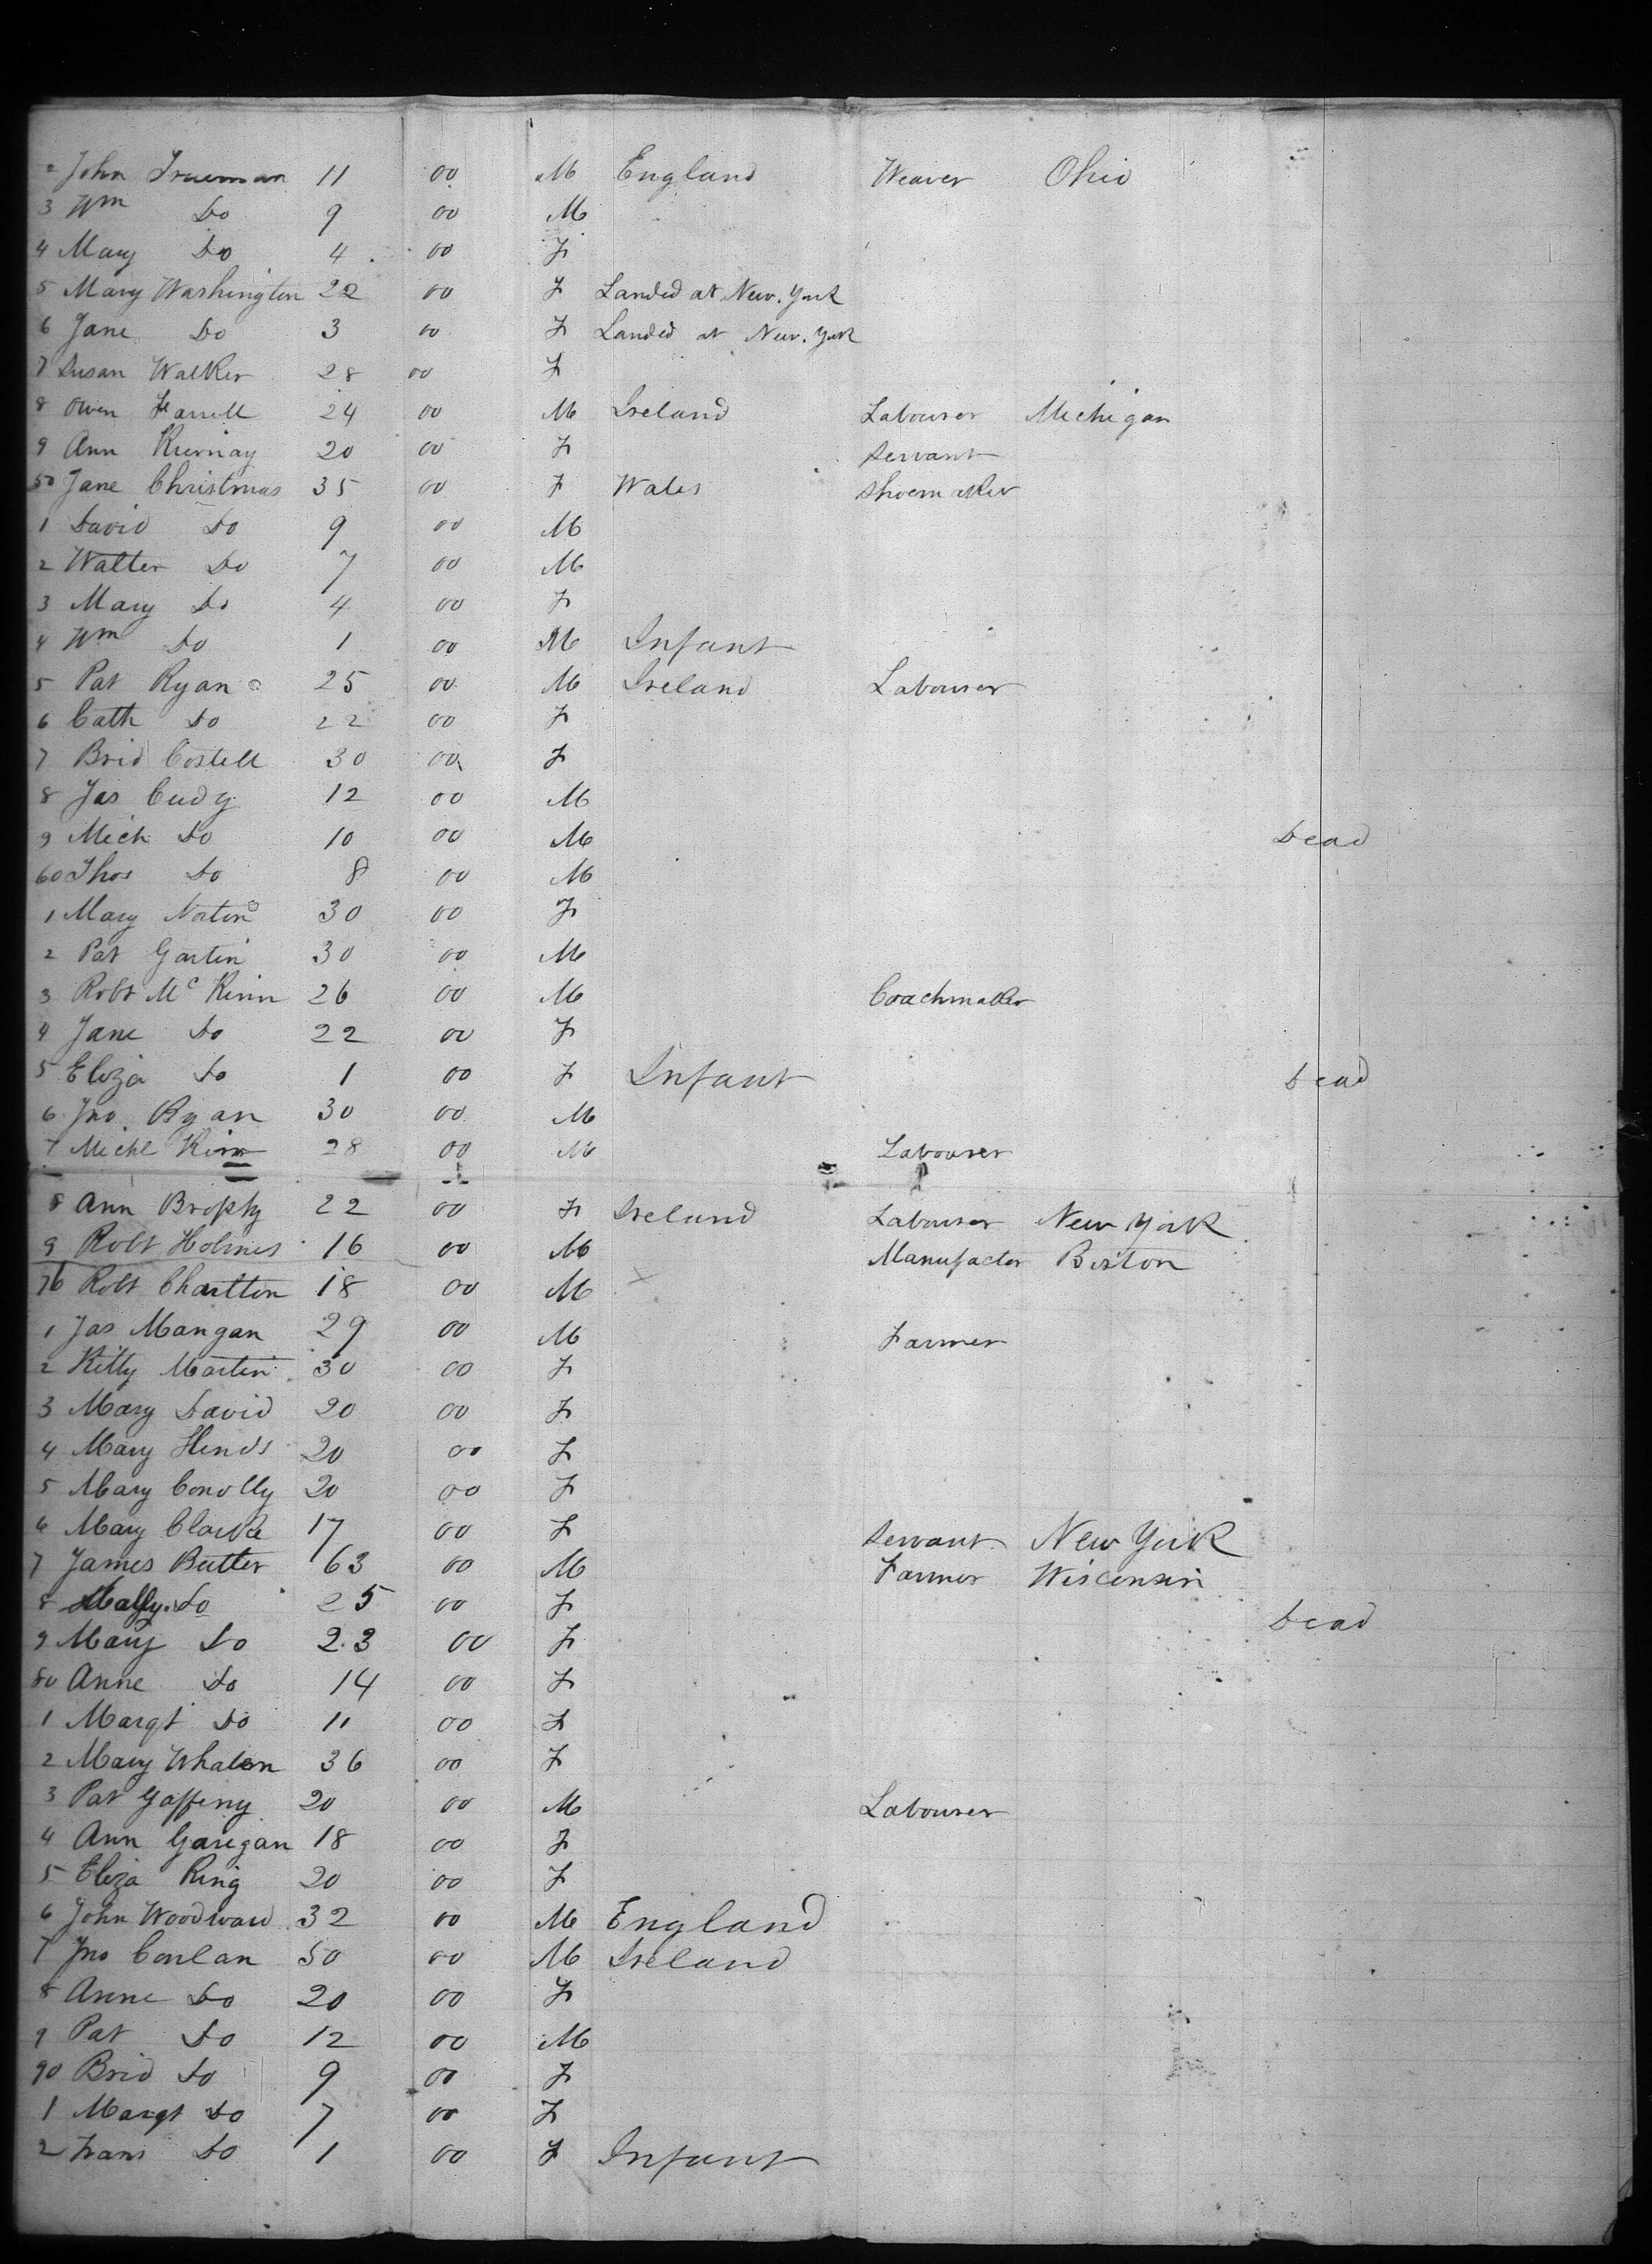 2 John Trueman 11 00 M England Weaver Ohio
3 Wm Do 9 00 M
4 Mary Do 4 00 F
5 Mary Washington 22 00 F Landed at New. York
6 Jane Do 3 00 F Landed at New. York
7 Susan Walker 28 00 F
8 Owen Farrell 24 00 M Ireland Labourer Michigan
9 Ann Kiernay 20 00 F Servant
50 Jane Christmas 35 00 F Wales Shoemaker
1 David Do 9 00 M
2 Walter Do 7 00 M
3 Mary Do 4 00 F
4 Wm Do 1 00 M Infant
5 Pat Ryan 25 00 M Ireland Labourer
6 Cath Do 22 00 F
7 Brid Costell 30 00 F
8 Jas Cudy 12 00 M
9 Mich Do 10 00 M Dead
60 Thos Do 8 00 M
1 Mary Naton 30 00 F
2 Pat Gartin 30 00 M
3 Robt Mc Kinn 26 00 M Coachmaker
4 Jane Do 22 00 F
5 Eliza Do 1 00 F Infant Dead
6 Jno. Ryan 30 00 M
7 Michl Kirn 28 00 M Labourer
8 Ann Brophy 22 00 F Ireland Labourer New York
9 Robt Holmes 16 00 M Manufacter Boston
70 Robt Charlton 18 00 M
1 Jas Mangan 29 00 M Farmer
2 Kitty Martin 30 00 F
3 Mary David 20 00 F
4 Mary Hinds 20 00 F
5 Mary Conolly 20 00 F
6 Mary Clarke 17 00 F Servant New York
7 James Butler 63 00 M Farmer Wisconsin
8 Do 25 00 F
9 Mary Do 23 00 F Dead
80 Anne Do 14 00 F
1 Margt Do 11 00 F
2 Mary Whalen 36 00 F
3 Pat Gaffeny 20 00 M Labourer
4 Ann Garigan 18 00 F
5 Eliza King 20 00 F
6 John Woodward 32 00 M England
7 Jno Conlan 50 00 M Ireland
8 Anne Do 20 00 F
9 Pat Do 12 00 M
90 Brid Do 9 00 F
1 Margt Do 7 00 F
2 Frans Do 1 00 F Infant